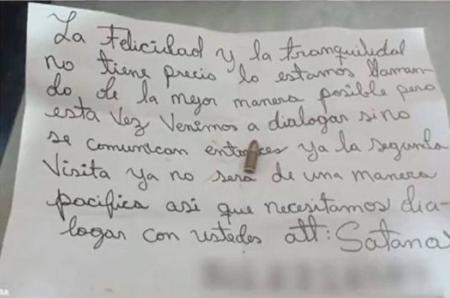 La Felicidad y la tranquilidad
no tiene precio lo estamos llaman
do de la mejor manera posible pero
esta vez venimos a dialogar sino
se comunican entonces ya la segunda
visita ya no será de una manera
pacifica asi que necesitamos dia-
logar con ustedes att: Satanas